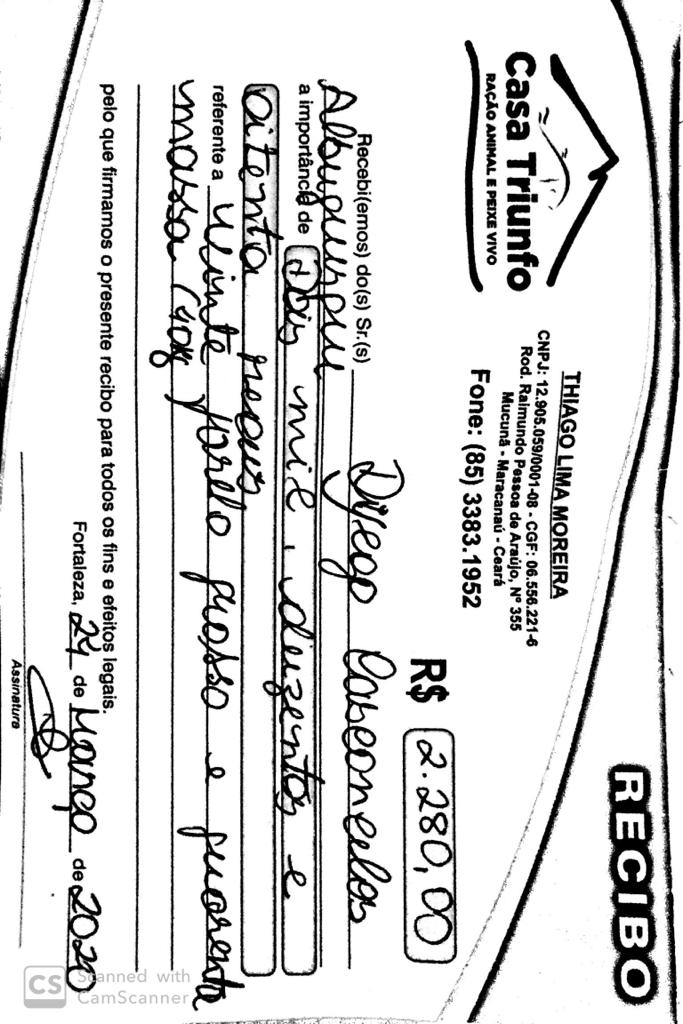 RECIBO
Casa Triunfo
RAÇÃO ANIMAL E PEIXE VIVO
THIAGO LIMA MOREIRA
CNPJ: 12.905.059/0001-08 - CGF: 06.556.221-6
Rod. Raimundo Pessoa de Araújo, Nº 355
Mucunã - Maracanaú - Ceará
Fone: (85) 3383.1952
R$ 2.280,00
Recebi(emos) do(s) Sr.(s) Dyego Vasconcelos
Albuquerque
a importância de Dois mil, duzentos e
oitenta reais
referente a Vinte farelo grosso e quarenta
massa (40kg
pelo que firmamos o presente recibo para todos os fins e efeitos legais.
Fortaleza, 24 de Março de 2020
Assinatura
CS Scanned with
CamScanner